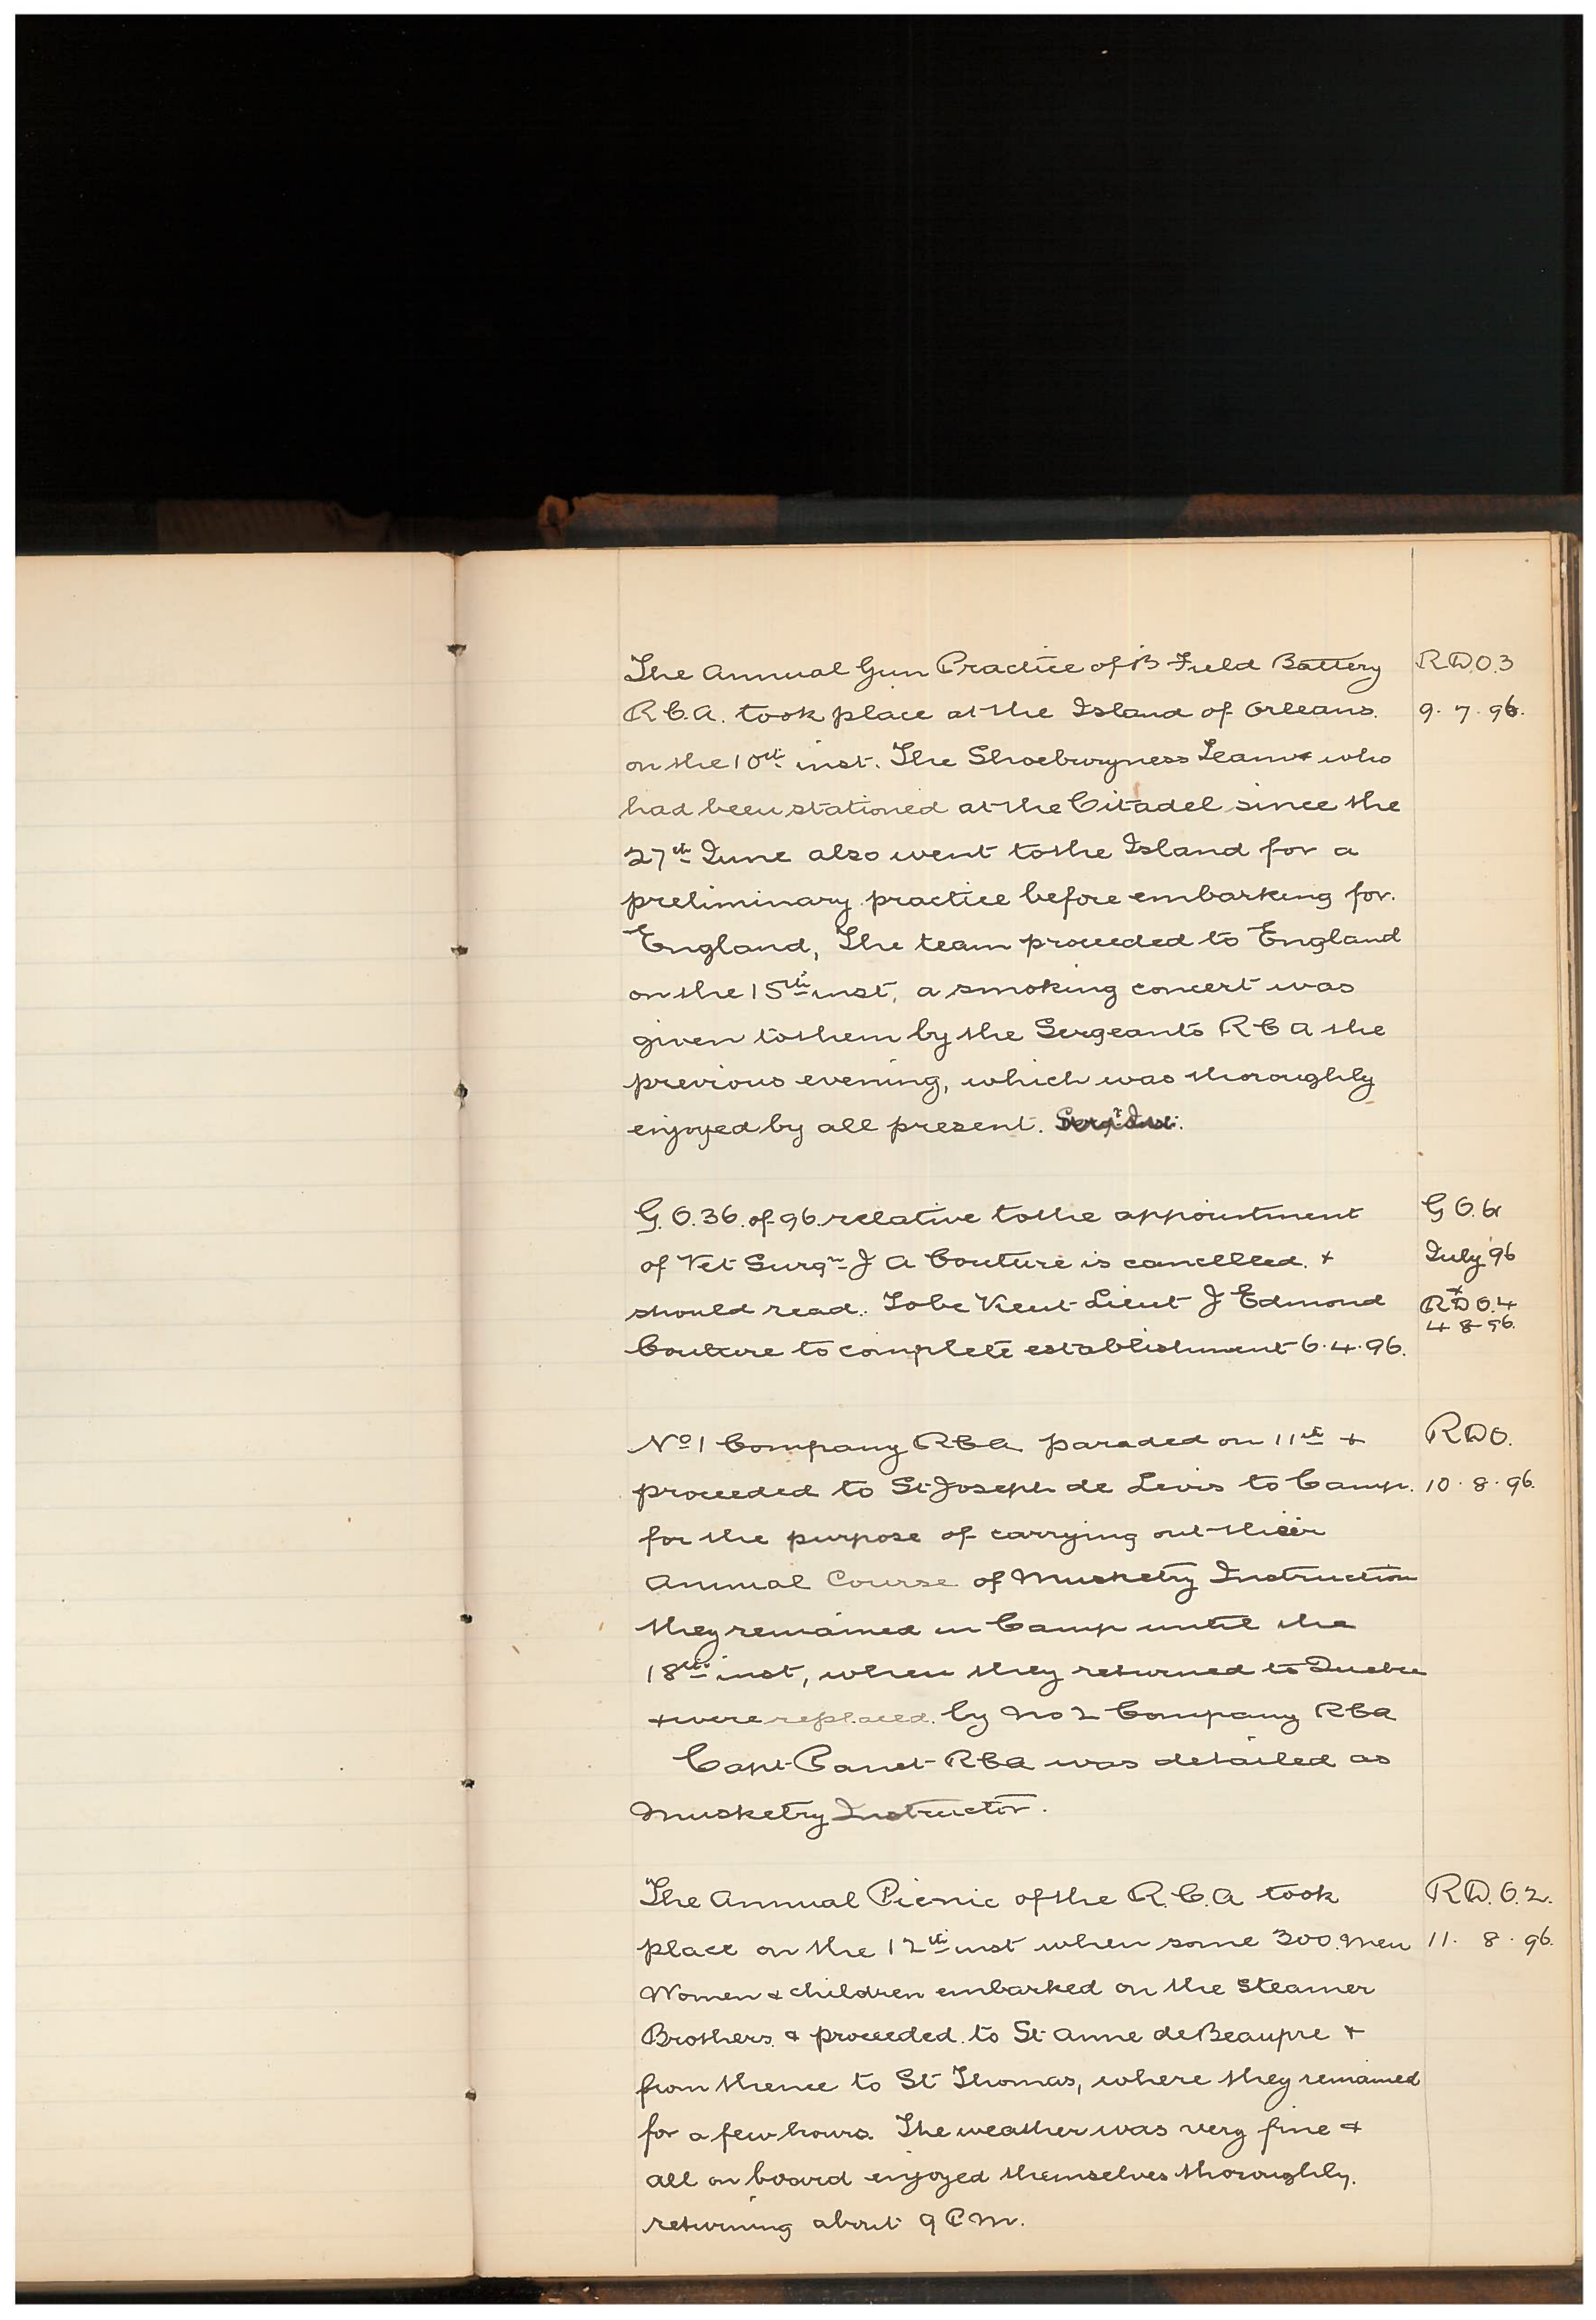 The Annual Gun Practice of B Field Battery R.D.O.3
R.C.A. took place at the Island of Orleans. 9.7.96.
on the 10th inst. The Shoeburyness Team who
had been stationed at the Citadel since the
27th June also went to the Island for a
preliminary practice before embarking for.
England, The team proceeded to England
on the 15th inst, a smoking concert was
given to them by the Sergeants R C A the
previous evening, which was thoroughly
enjoyed by all present.
G.O.36.of 96.relative to the appointment G O.61
of Vet Surgn J A Couture is cancelled. + July 96
should read. To be Lieut J Edmond + R D O.4
Couture to complete establishment 6.4.96. 4 8 96.
No 1 Company RCA paraded on 11th + R D O.
proceeded to St Joseph de Levis to Camp. 10.8.96.
for the purpose of carrying out their
Annual Course of Musketry Instruction
they remained in Camp until the
18th inst, when they returned to Quebec
+ were replaced. by No 2 Company RCA
Capt Panet RCA was detailed as
Musketry Instructor.
The Annual Picnic of the R.C.A took R.D.O.2.
place on the 12th inst when some 300.Men 11. 8. 96.
Women & children embarked on the Steamer
Brothers. & proceeded. to St Anne de Beaupre +
from thence to St Thomas, where they remained
for a few hours. The weather was very fine &
all on board enjoyed themselves thoroughly.
returning about 9 P m.